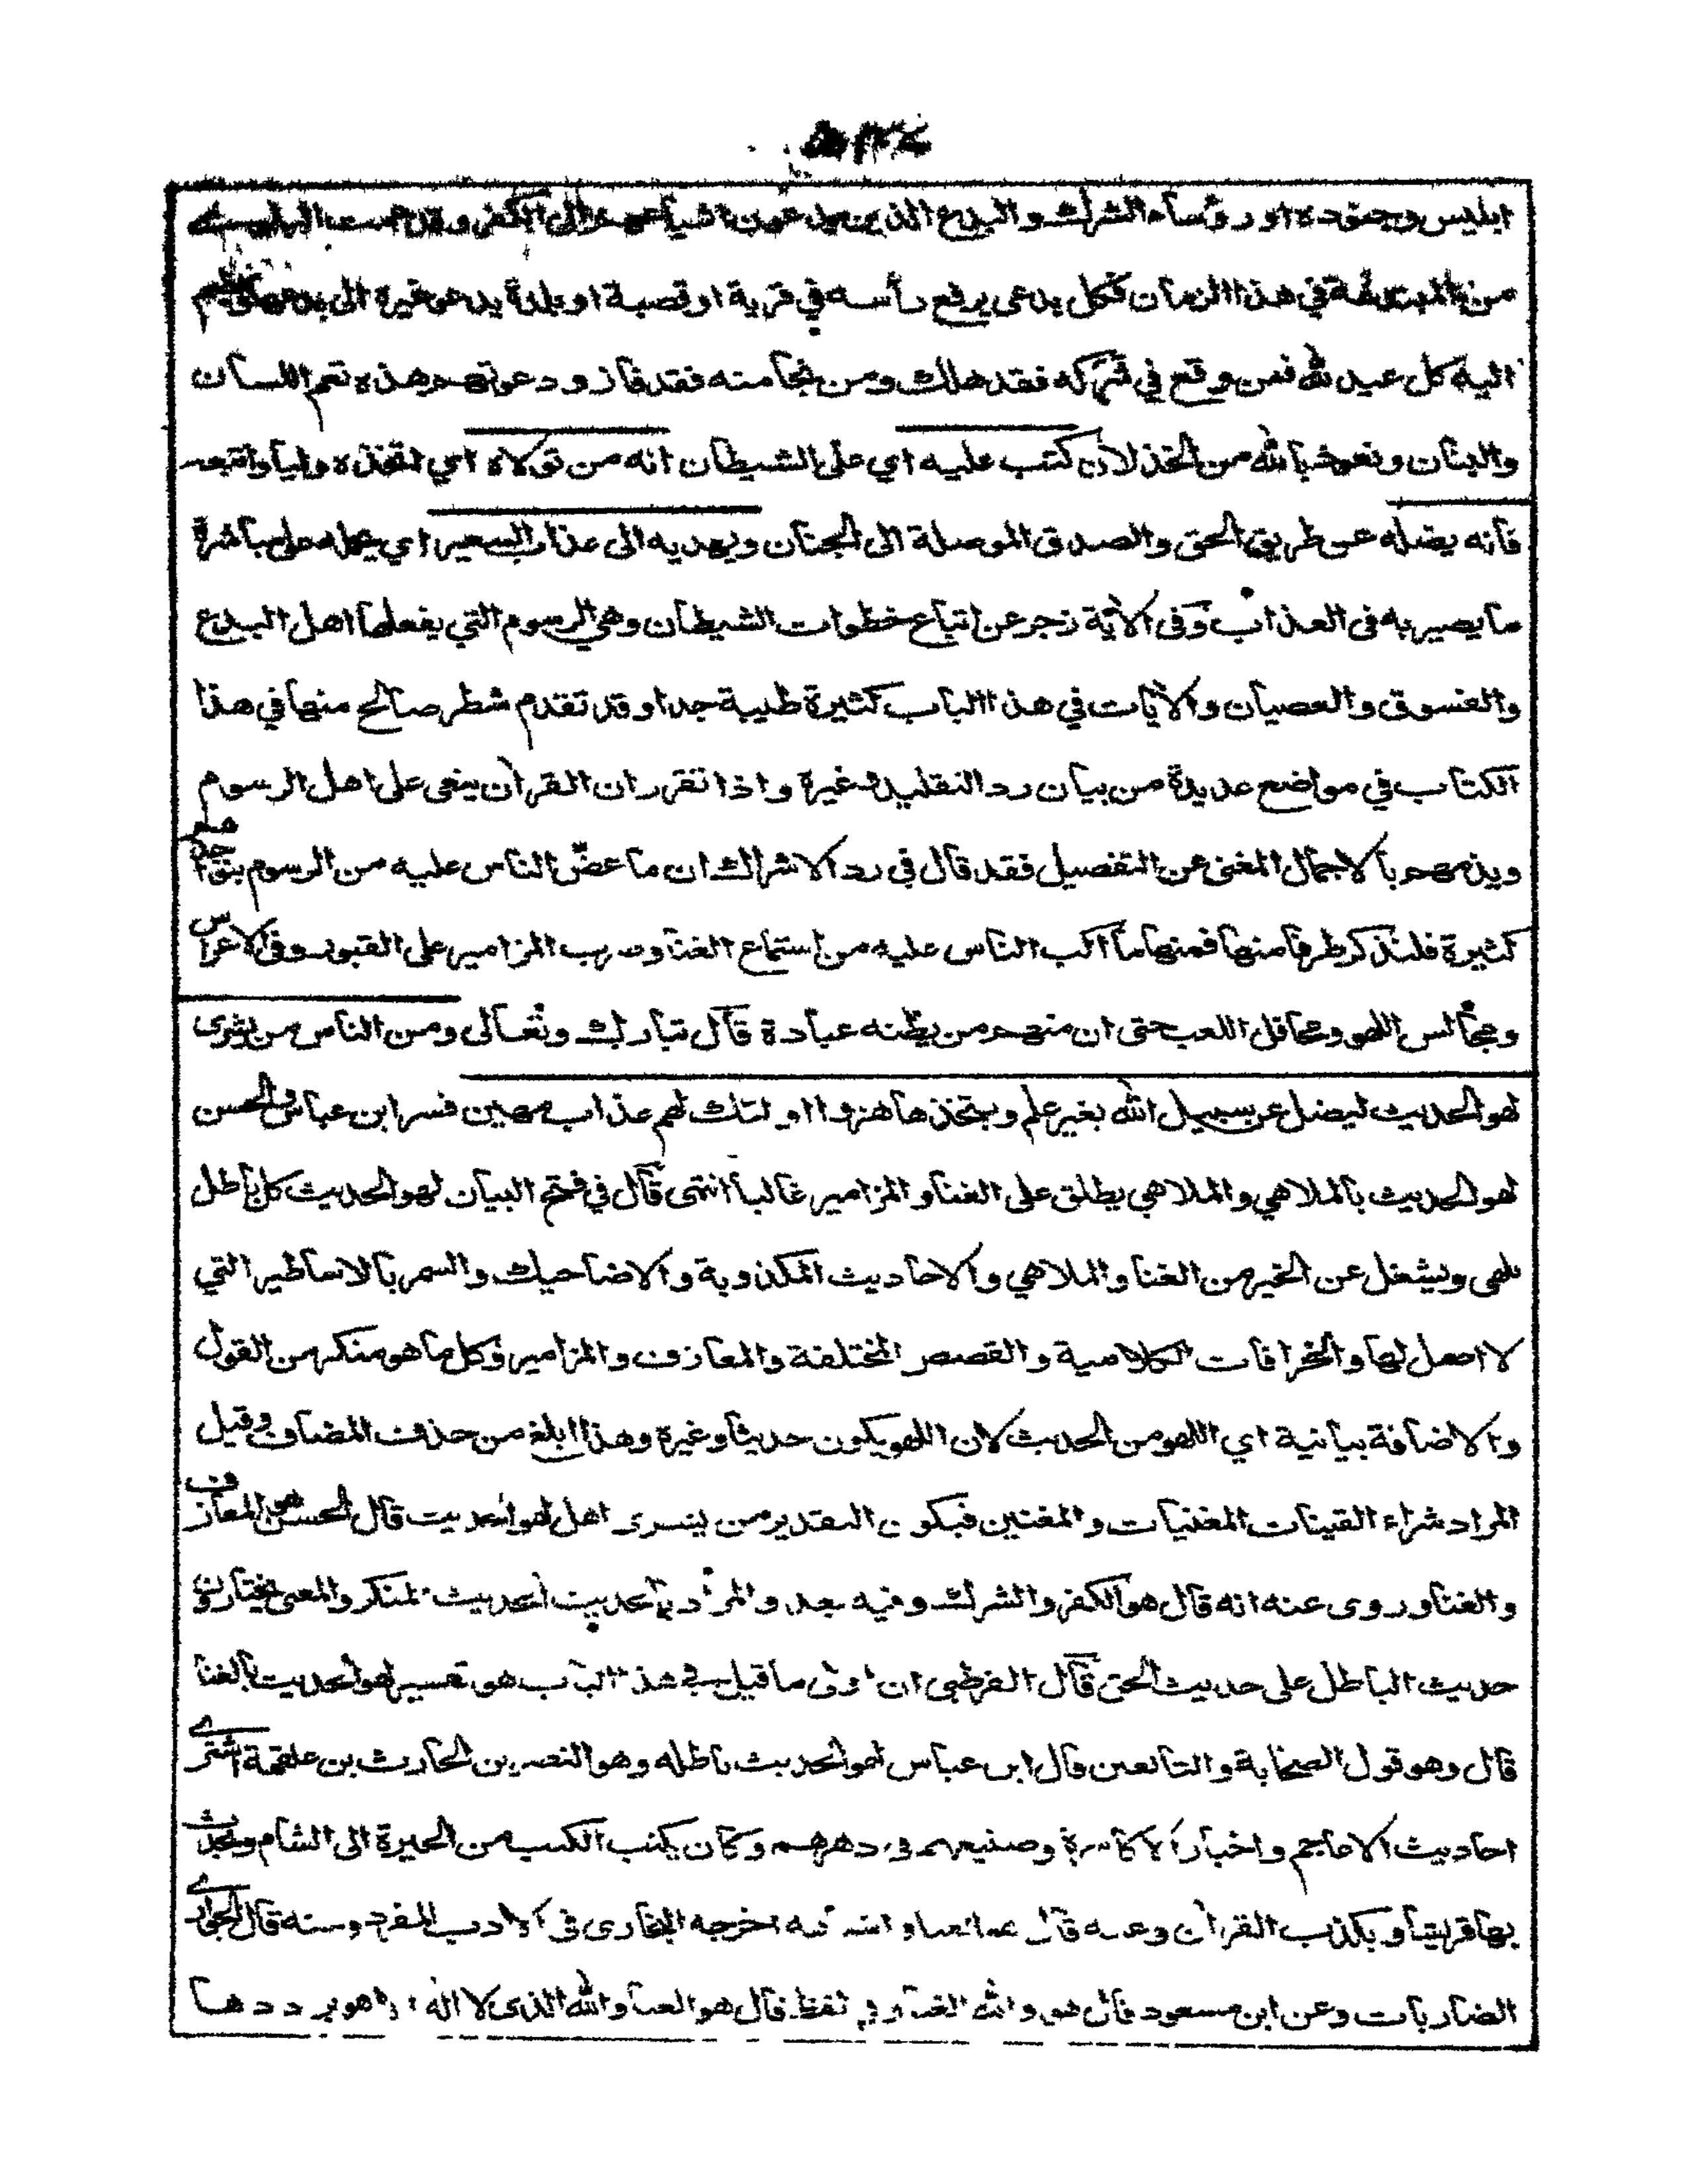 ابليس وجنوده او رؤساء الشرك والبدع الذين يدعون اشياعهم الى الكفر وقد
من المبتدعة في هذا الزمان فكل بدعى يرفع رأسه في قرية او قصبة او بلدة يدعو غيره الى
اليه كل عبد لله فمن وقع في شركه فقد هلك ومن نجا منه فقد فاز ودعوتهم هذه تعم اللسان
والبنان ونعوذ بالله من الخذلان كتب عليه اي على الشيطان انه من تولاه اي اتخذه وليا واتبعه
فانه يضله عن طريق الحق والصدق الموصلة الى الجنان ويهديه الى عذاب السعير اي يحمله على مباشرة
ما يصير به فى العذاب وفى الآية زجر عن اتباع خطوات الشيطان وهي الرسوم التي يفعلها اهل البدع
والفسوق والعصيان والآيات في هذا الباب كثيرة طيبة جدا وقد تقدم شطر صالح منها في هذا
الكتاب في مواضع عديدة من بيان رد التقليد وغيره واذا تقرر ان القرآن ينعى على اهل الرسوم
ويذمهم بالاجمال المغنى عن التفصيل فقد قال فى رد الاشراك ان ما عضّ الناس عليه من الرسوم
كثيرة فلنذكر طرفا منها فمنها ما اكب الناس عليه من استماع الغنا وضرب المزامير على القبور وفى الاعراس
ومجالس اللهو ومحافل اللعب حتى ان منهم من يظنه عبادة قال تبارك وتعالى ومن الناس من يشترى
لهو الحديث ليضل عن سبيل الله بغير علم ويتخذها هزوا اولئك لهم عذاب مهين فسر ابن عباس والحسن
لهو الحديث بالملاهي والملاهي يطلق على الغنا والمزامير غالبا انتهى قال في فتح البيان لهو الحديث كل باطل
يلهى ويشغل عن الخير من الغنا والملاهي والاحاديث المكذوبة والاضاحيك والسمر بالاساطير التي
لا اصل لها والخرافات الكلامية والقصص المختلفة والمعازف والمزامير وكل ما هو منكر من القول
والاضافة بيانية اي اللهو من الحديث لان اللهو يكون حديثا وغيره وهذا ابلغ من حذف المضاف وقيل
المراد شراء القينات المغنيات والمغنين فيكون التقدير من يشترى اهل لهو الحديث قال الحسن هو المعازف
والغنا وروى عنه انه قال هو الكفر والشرك وفيه بعد والمراد بالحديث الحديث المنكر والمعنى يختارون
حديث الباطل على حديث الحق قال القرطبى ان اولى ما قيل في هذا الباب هو تفسير لهو الحديث بالغنا
قال وهو قول الصحابة والتابعين قال ابن عباس لهو الحديث باطله وهو النضر بن الحارث بن علقمة اشترى
احاديث الاعاجم واخبار الاكاسرة وصنيعهم فى دهرهم وكان يكتب الكتب من الحيرة الى الشام ويحدث
بها قريشا ويكذب القرآن وعنه قال اخرجه البخارى فى الادب المفرد وعنه قال الجوارى
الضاربات وعن ابن مسعود قال هو والله الغنا وفى لفظ قال هو الغنا والله الذى لا اله الا هو يرددها